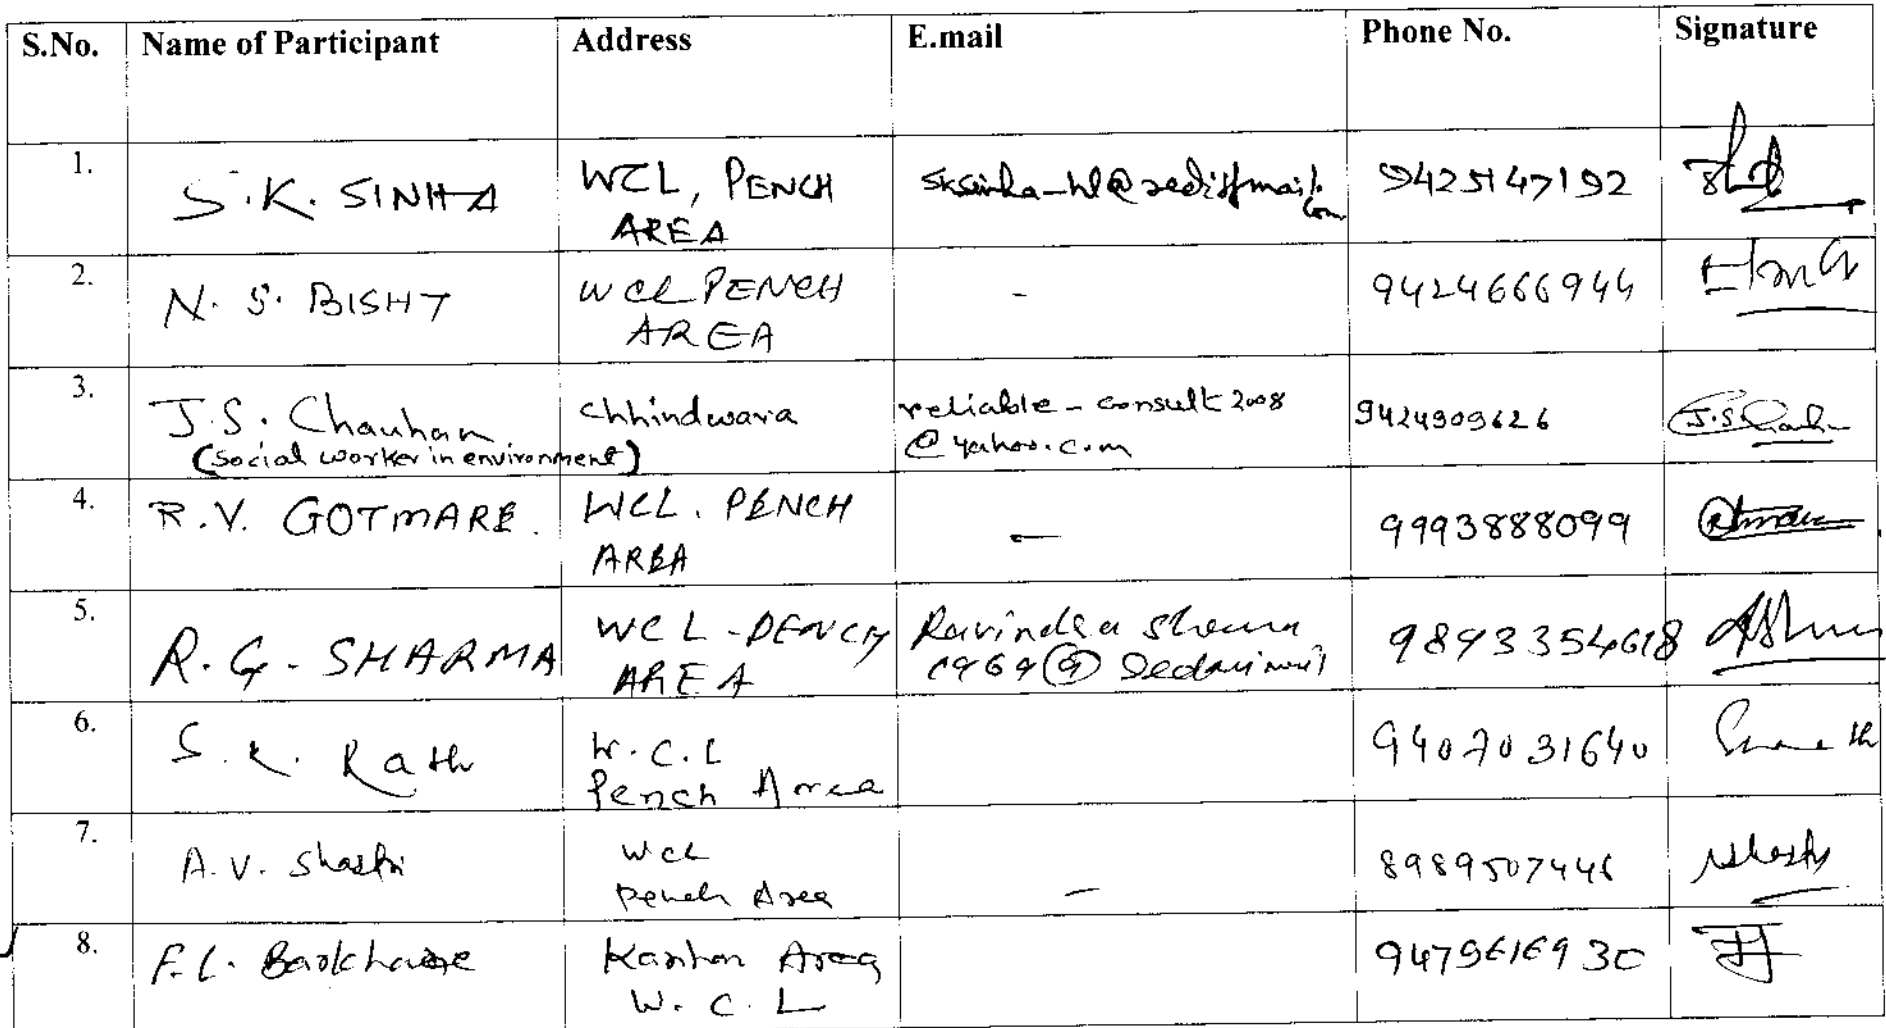 S.No. Name of Participant Address E.mail Phone No. Signature
1. S.K. SINHA WCL, PENCH AREA sksinha_wl@rediffmail.com 9425147192
2. N. S. BISHT WCL PENCH AREA - 9424666944
3. J.S. Chauhan (Social worker in environment) Chhindwara reliable-consult2008@yahoo.com 9424909626 J.S
4. R.V. GOTMARE. WCL. PENCH AREA — 9993888099
5. R.G. SHARMA WCL-PENCH AREA 9893354618
6. S.K. Rath W.C.L Pench Area 9407031640
7. A.V. Shastri WCL Pench Area — 8989507446
8. F.L. Kanhan Area W.C.L 9479616930